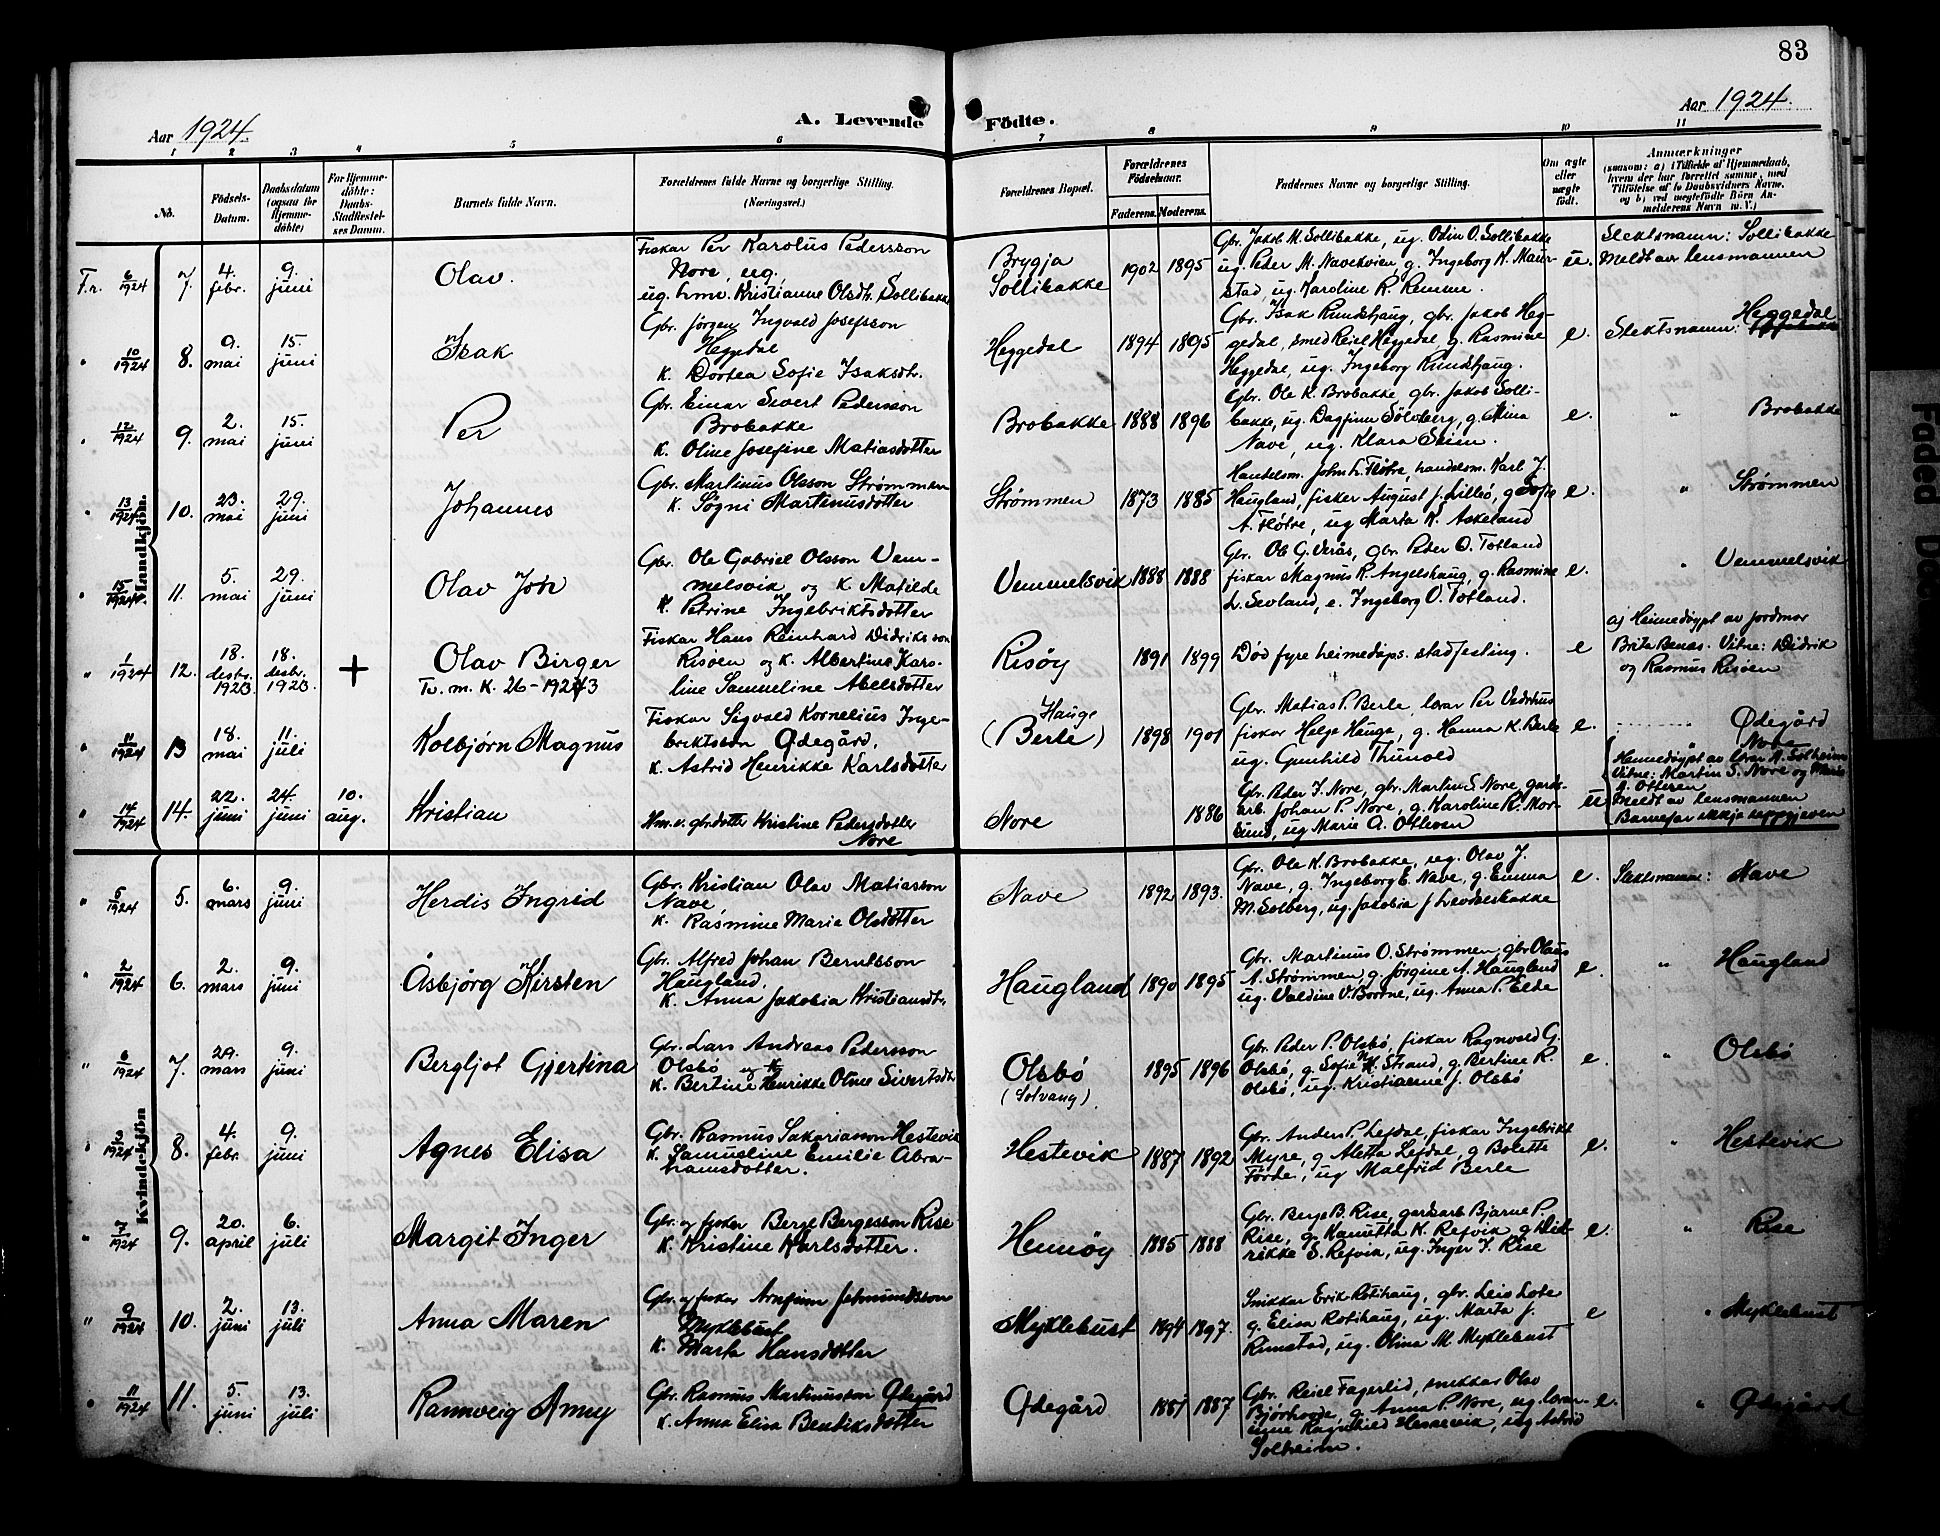 83
Aar 1924.
A. Levende Födte.
Aar 1924.
1 2 3 4 5 6 7 8 9 10 11
No.
Födsels-
Datum.
Daabsdatum
(ogsaa for
Hjemme-
döbte)
For Hjemme-
döbte:
Daabs-
Stadfæstel-
ses Datum.
Barnets fulde Navn.
Forældrenes fulde Navne og borgerlige Stilling.
(Næringsvei.)
Forældrenes Bopæl.
Forældrenes
Födselsaar.
Faderens. Moderens.
Faddernes Navne og borgerlige Stilling.
Om ægte
eller
uægte
født.
Anmærkninger
(saasom: a) i Tilfælde af Hjemmedaab,
hvem der har forrettet samme, med
Tilföielse af to Daabsvidners Navne,
og b) ved uægtefödte Börn An-
melderens Navn m. V.)
Mandkjön.
F.r. 6/1924 7. 4. febr. 9. juni
Olav.
Fiskar Per Karolus Pedersson
Nore, ug.
ug. Kristianne Olsdtr. Sollibakke
Brygja
Sollibakke
1902 1895
Gbr. Jakob M. Sollibakke, ug. Odin O. Sollibakke
ug. Peder M. Navekvien, g. Ingeborg K. Maur-
stad, ug. Karoline R. Remme.
u.
Slektsnamn: Sollibakke
Meldt av lensmannen
" 10/1924 8. 9. mai 15. juni
Isak
Gbr. Jörgen Ingvald Josefsson
Heggedal
K. Dortea Sofie Isaksdtr.
Heggedal
1894 1895
Gbr. Isak Rundhaug, gbr. Jakob Heg-
gedal, smed Reiel Heggedal, g. Rasmine
Heggedal, ug. Ingeborg Rundhaug.
e.
Slektsnamn: Heggedal
" 12/1924 9. 2. mai 15. juni
Per
Gbr. Einar Sivert Pedersson
Brobakke
K. Oline Josefine Matiasdotter
Brobakke
1888 1896
Gbr. Ole K. Brobakke, gbr. Jakob Solli-
bakke, ug. Dagfinn Sölvberg, g. Mina
Nave, ug. Klara Seim.
e.
" Brobakke
" 13/1924 10. 23. mai 29. juni
Johannes
Gbr. Martinus Olsson Strømmen
K. Søgni Martinusdotter
Strømmen
1873 1885
Handelsm. John L. Fløtre, handelsm. Karl J.
Haugland, fisker August J. Lilleø, g. Sofie
A. Fløtre, ug Marta K. Askeland
e.
" Strømmen
" 15/1924 11. 5. mai 29. juni
Olav Jon
Gbr. Ole Gabriel Olsson Vem-
melsvik og K. Matilde
Petrine Ingebriktsdotter
Vemmelsvik
1888 1888
Gbr. Ole G. Verås, gbr. Peder O. Totland
fiskar Magnus R. Angelshaug, g. Rasmine
L. Sevland, e. Ingeborg O. Totland.
e.
" Vemmelsvik
" 1/1924 12. 18. desbr. 1923. 18. desbr. 1923. +
Olav Birger
Tv. m. K. 26-1923
Fiskar Hans Reinhard Didriksson
Risøen og K. Albertine Karo-
line Samueline Abelsdotter
Risøy
1891 1899
Død fyre heimedåps. stadfesting.
e
a) Heimedøypt av jordmor
Brita Benas. Vitne: Didrik
og Rasmus Risøen
" 11/1924 13 18. mai 11. juli
Kolbjørn Magnus
Fiskar Sigvald Kornelius Inge-
briktsson Ødegård.
K. Astrid Henrikke Karlsdotter
Hauge
(Berle)
1898 1901
Gbr. Matias P. Berle, lærar Per Vedvhus
fiskar Helge Hauge, g. Hanna K. Berle
ug. Gunhild Thunold
e.
" Ødegård
" 14/1924 14. 22. juni 24. juni 10. aug.
Kristian
Hm.v. gbrdotter Kristine Pedersdotter
Nore
Nore
1886
Gbr. Peder J. Nore, gbr. Martin S. Nore, gards-
arb. Johan P. Nore, g. Karoline R. Mor-
sund, ug Marie A. Otteren
u
Nore
Heimedøypt av lærar A. Solheim
Vitne: Martin S. Nore og Marie
A. Otteren
Meldt av lensmannen
Barnefar ikkje uppgjeven
Kvindekjön
" 5/1924 5. 6. mars 9. juni
Herdis Ingrid
Gbr. Kristian Olav Matiasson
Nave
K. Rasmine Marie Olsdotter
Nave
1892 1893.
Gbr. Ole K. Brobakke, ug. Olav J.
Nave, g. Ingeborg E. Nave, g. Emma
M. Solberg, ug. Jakobia J. Levdalsbakke
e.
Slektsnamn: Nave
" 2/1924 6. 2. mars 9. juni
Åsbjörg Kirsten
Gbr. Alfred Johan Berntsson
Haugland.
K. Anna Jakobia Kristiansdtr.
Haugland
1890 1895
Gbr. Martinus O. Strømmen, gbr Olaus
A. Strømmen g. Jørgine A. Haugland
ug. Valdine V. Bortne, ug. Anna P. Elde
e.
" Haugland
" 6/1924 7. 29. mars 9. juni
Bergljot Gjertina
Gbr. Lars Andreas Pedersson
Olsbö
K. Bertine Henrikke Oline Sivertsdtr
Olsbö
(Solvang)
1895 1896
Gbr. Peder P. Olsbö, fiskar Ragnvald G.
Olsbö, g. Sofie K. Strand, g. Bertine R.
Olsbö, ug. Kristianne J. Olsbö
e.
" Olsbö
" 3/1924 8. 4. febr. 9. juni
Agnes Elisa
Gbr. Rasmus Sakariasson Hestevik
K. Samueline Emilie Abra-
hamsdotter.
Hestevik
1887 1892
Gbr. Anders P. Lefdal, fiskar Ingebrikt
Myre, g Aletta Lefdal, g Bolette
Förde, ug Malfrid Berle
e.
" Hestevik
" 7/1924 9. 20. april 6. juli
Margit Inger
Gbr. og fiskar Berge Bergesson Rise
K. Kristine Karlsdotter.
Hennøy
1885 1888
Gbr. Berge B. Rise, gardsarb Bjarne P.
Rise, g. Kanutta K. Refvik, g Did-
rikke S. Refvik, ug. Inger J. Rise
e.
" Rise
" 9/1924 10. 2. juni 13. juli
Anna Maren
Gbr. og fiskar Arnfinn Johnundsson
Myklebust
K. Marta Hansdotter
Myklebust
1894 1897.
Snikkar Erik Rotihaug, gbr. Leis Lote
g. Elisa Rotihaug, ug. Marta J.
Rimstad, ug. Olina M. Myklebust
e
" Myklebust
" 11/1924 11. 5. juni 13. juli
Rannveig Anny
Gbr. Rasmus Martinusson Ødegård
K. Anna Elisa Bendiksdotter
Ødegård
1887 1887
Gbr. Reiel Fagerlid, snikkar Olav
Bjørhovde, g Anna P. Nore, ug. lærar-
inne Ragnhild Hessevik, ug Astrid
Solheim.
e.
" Ødegård
Faded Doc